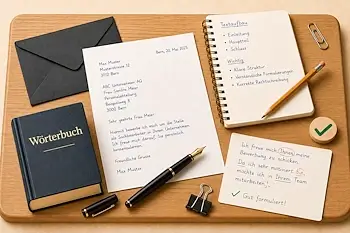 Max Muster
Musterstrasse 12
3010 Bern
Bern, 20. Mai 2025
ABC International AG
Frau Sandra Meier
Personalabteilung
3000 Bern
Sehr geehrte Frau Meier
Hiermit bewerbe ich mich um die Stelle
als Sachbearbeiterin in Ihrem Unternehmen
Ich freue mich darauf, Sie persönlich
kennenzulernen.
Freundliche Grüsse
Max Muster
Textaufbau
• Einleitung
• Hauptteil
• Schluss
Wichtig:
• Klare Struktur
• Verständliche Formulierungen
• Korrekte Rechtschreibung
Wörterbuch
Ich freue mich, Ihnen meine
Bewerbung zu schicken.
Da ich sehr motiviert bin,
möchte ich in Ihrem Team
mitarbeiten.
✓ Gut formuliert!